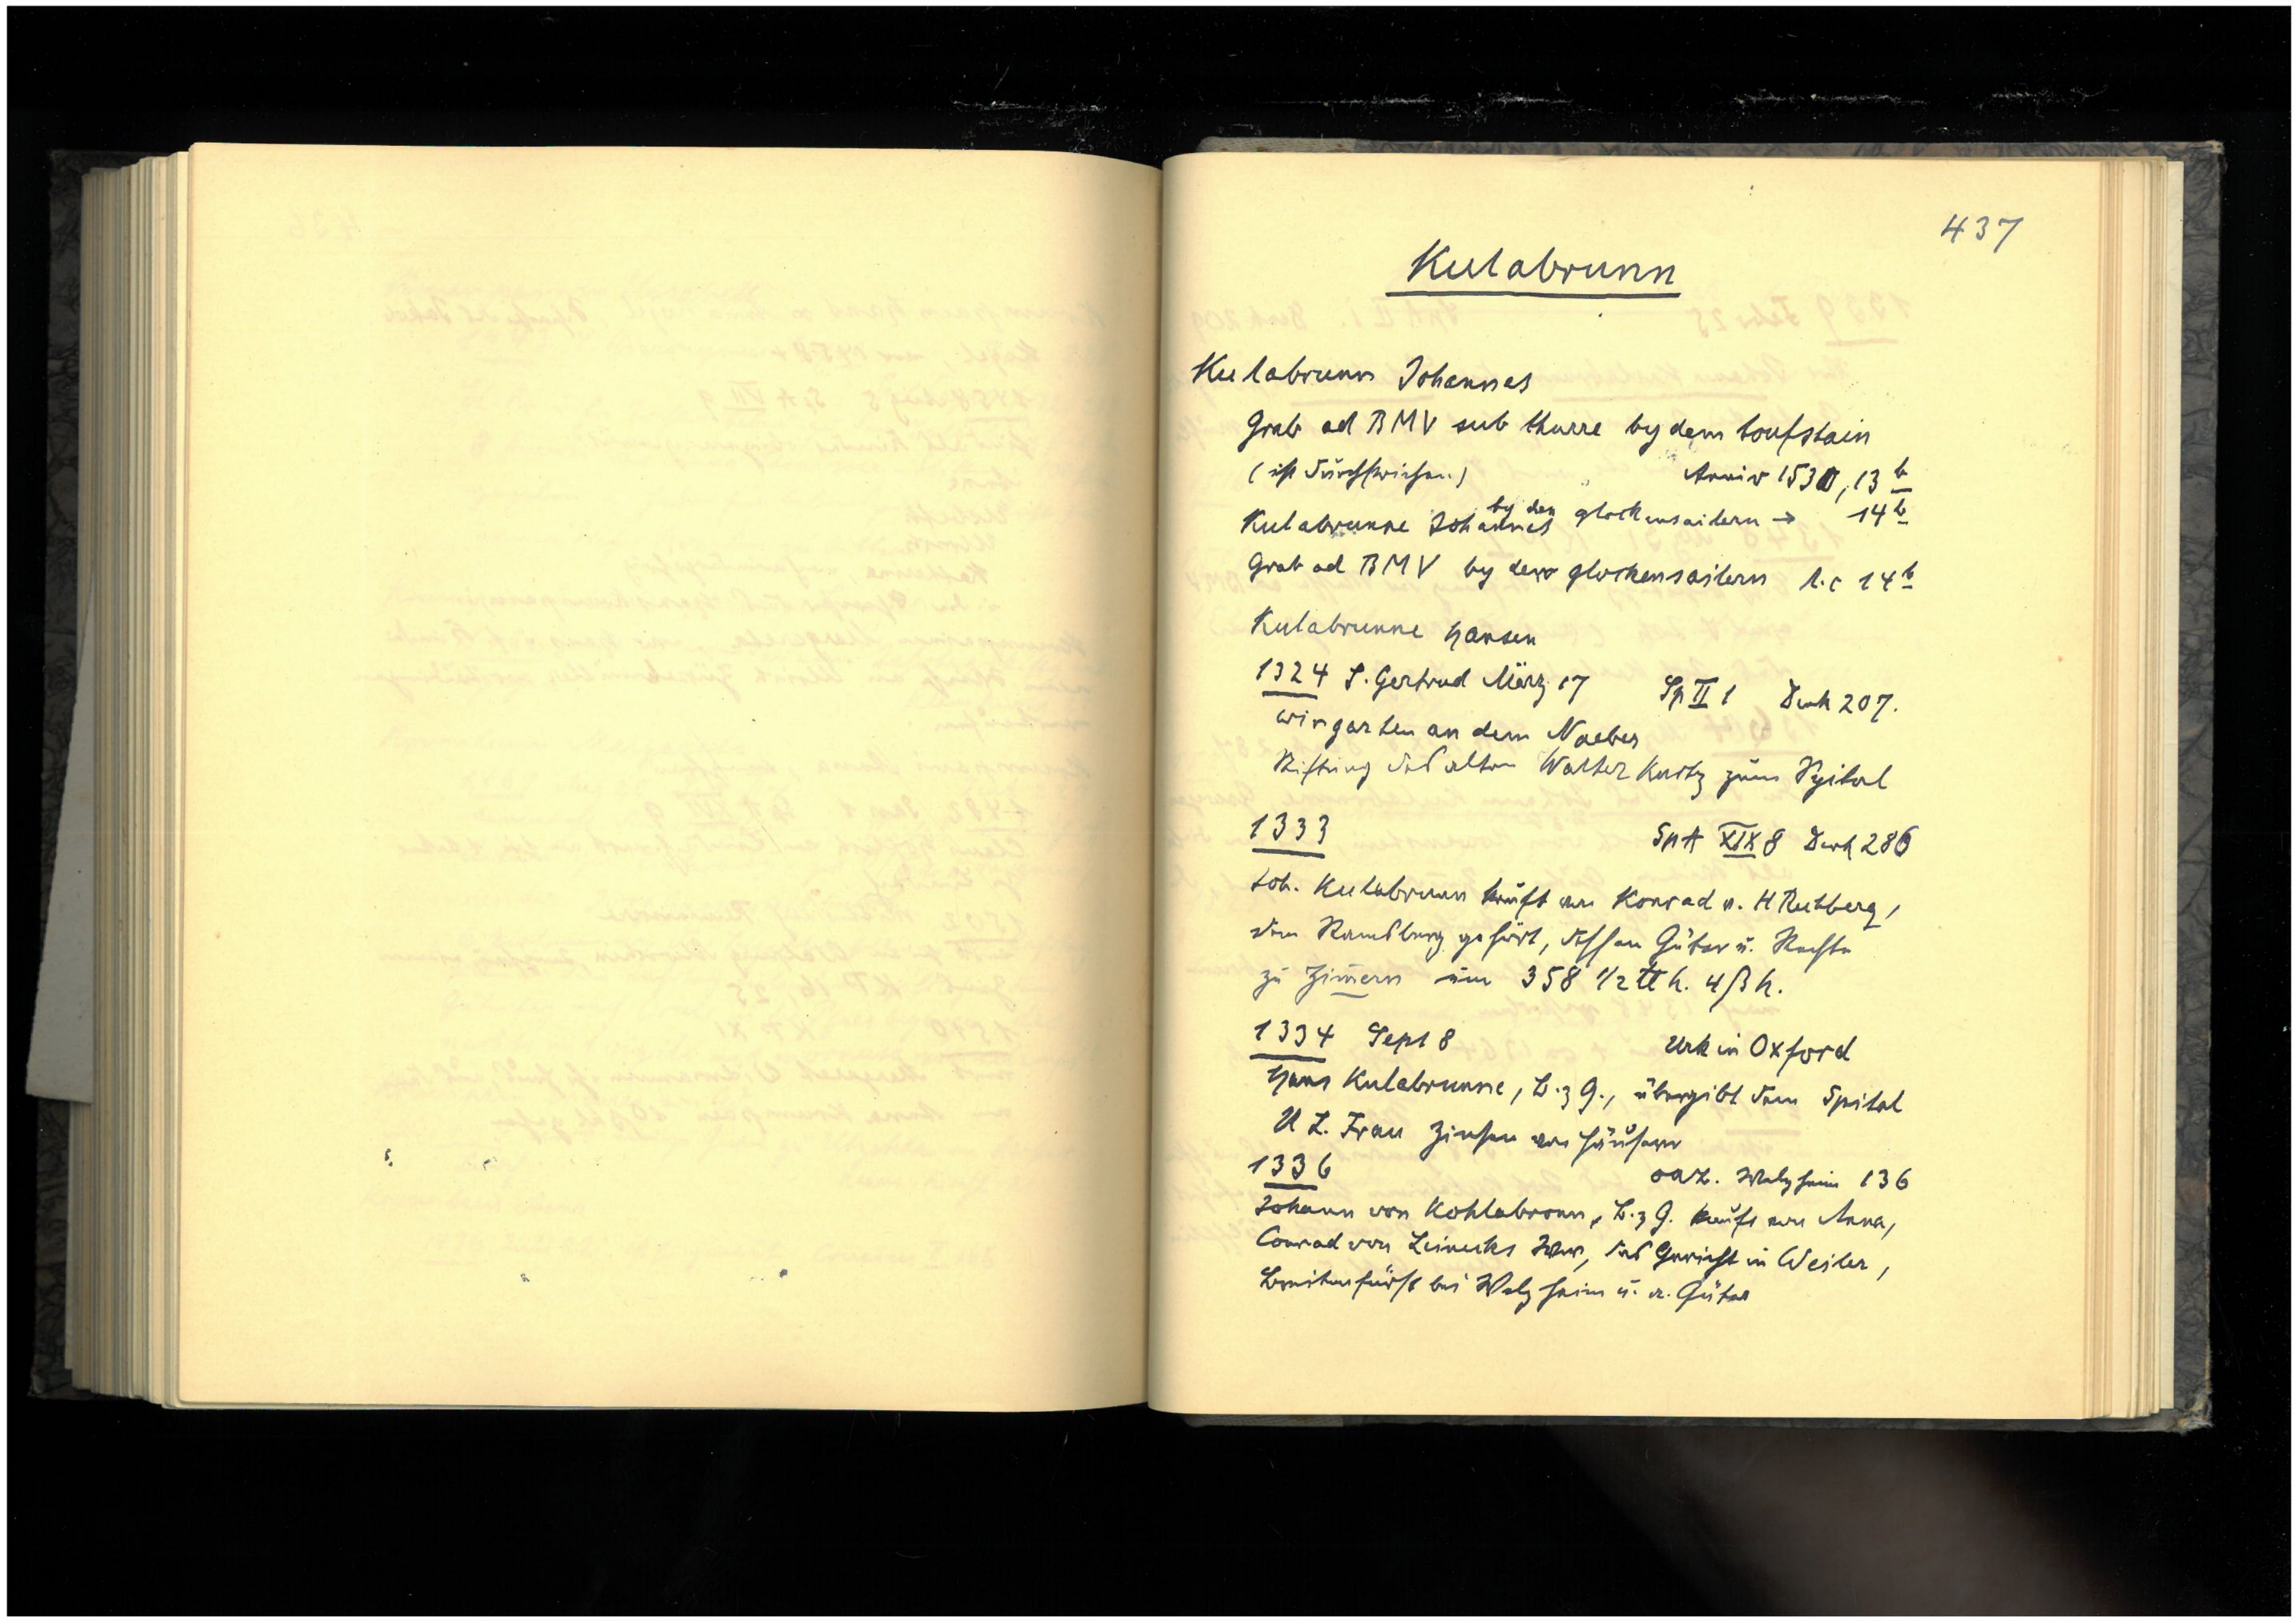 437
Kulabrunn
Kulabrunn Johannes
Grab ad BMV sub thurre by dem toufstain
(ist durchstrichen) Anniv 1530, 13 b
Kulabrunne Johannes by den glockensailern → 14 b
Grab ad BMV by dem glockensailern l.c 14 b
Kulabrunne Hansen
1324 S. Gertrud März 17 Sp II 1 Denk 207.
wingarten an dem Naeber
Stiftung des alten Walther Kurtz zum Spital
1333 SpA XIX 8 Denk 286
Joh. Kulabrunn kauft von Konrad v. H Rechberg,
dem Ramsberg gehört, dessen Güter u. Rechte
zu Zimern um 358 1/2 ℔ h. 4 ß h.
1334 Sept 8 Urk in Oxford
Hans Kulabrunne, B. z G., übergibt dem Spital
U L. Frau Zinsen von Häusern
1336 OAB. Welzheim 136
Johann von Kohlabronn, B. z G. kauft von Anna,
Conrad von Leinecks Wwe, das Gericht in Weiler,
Breitenfürst bei Welzheim u. a. Güter